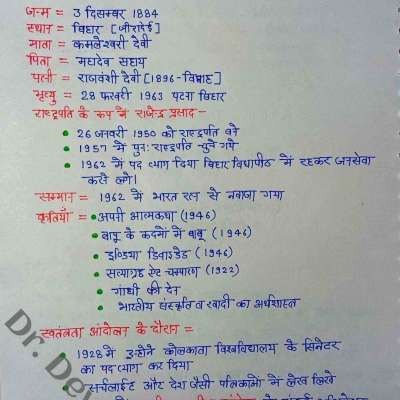 जन्म = 3 दिसम्बर 1884
स्थान = बिहार [जीरादेई]
माता = कमलेश्वरी देवी
पिता = महादेव सहाय
पत्नी = राजवंशी देवी [1896 - विवाह]
मृत्यु = 28 फरवरी 1963 पटना बिहार
राष्ट्रपति के रूप में राजेन्द्र प्रसाद -
• 26 जनवरी 1950 को राष्ट्रपति बने
• 1957 में पुनः राष्ट्रपति चुने गये
• 1962 में पद त्याग दिया बिहार विद्यापीठ में रहकर जनसेवा
करने लगे।
सम्मान = 1962 में भारत रत्न से नवाजा गया
कृतियाँ = • अपनी आत्मकथा (1946)
• बापू के कदमों में बाबू (1946)
• इण्डिया डिवाइडेड (1946)
• सत्याग्रह ऐट चम्पारण (1922)
• गांधी की देन
• भारतीय संस्कृति व खादी का अर्थशास्त्र
स्वतंत्रता आंदोलन के दौरान =
• 1928 में उन्होंने कोलकाता विश्वविद्यालय के सिनेटर
का पद त्याग कर दिया
• सर्चलाईट और देश जैसी पत्रिकाओं में लेख लिखे
Dr. Dev